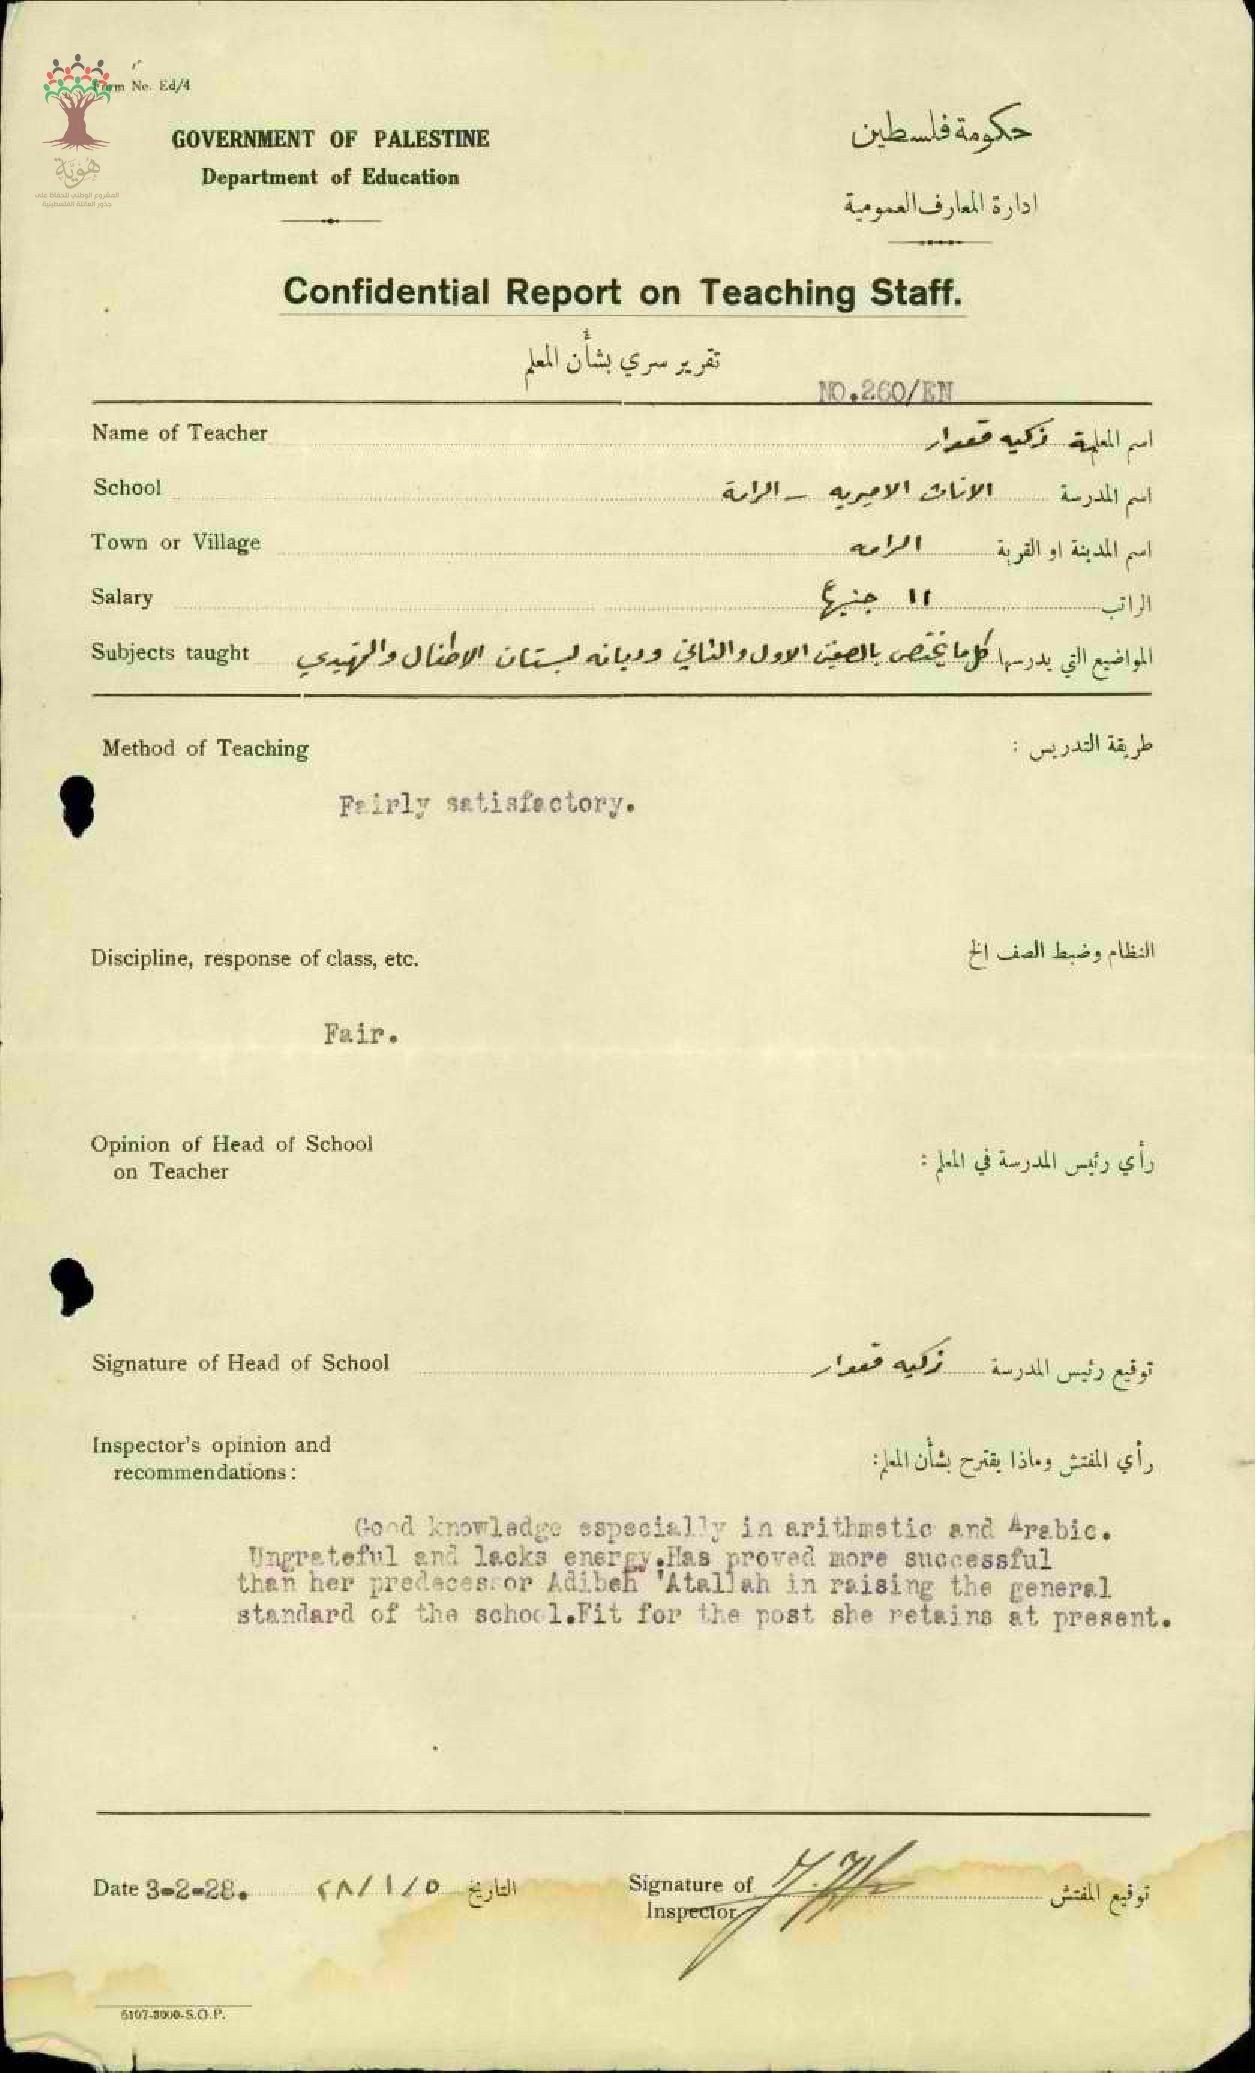 Form No. Ed/4
هُوِيَّة
المشروع الوطني للحفاظ على
جذور العائلة الفلسطينية
GOVERNMENT OF PALESTINE
Department of Education
حكومة فلسطين
ادارة المعارف العمومية
Confidential Report on Teaching Staff.
تقرير سري بشأن المعلم
NO.260/EN
Name of Teacher اسم المعلمة زكيه قعوار
School اسم المدرسة الاناث الاميريه - الرامة
Town or Village اسم المدينة او القرية الرامه
Salary الراتب ١١ جنيهاً
Subjects taught المواضيع التي يدرسها كل ما يختص بالصفين الاول والثاني وديانه لبستان الاطفال والتمهيدي
Method of Teaching طريقة التدريس :
Fairly satisfactory.
Discipline, response of class, etc. النظام وضبط الصف الخ
Fair.
Opinion of Head of School
on Teacher
رأي رئيس المدرسة في المعلم :
Signature of Head of School توقيع رئيس المدرسة زكيه قعوار
Inspector's opinion and
recommendations:
رأي المفتش وماذا يقترح بشأن المعلم:
Good knowledge especially in arithmetic and Arabic.
Ungrateful and lacks energy.Has proved more successful
than her predecessor Adibeh 'Atallah in raising the general
standard of the school.Fit for the post she retains at present.
Date 3-2-28. التاريخ ٥/١/٢٨
Signature of
Inspector
توقيع المفتش
5107-3000-S.O.P.